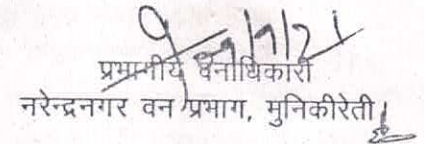 प्रभागीय वनाधिकारी
नरेन्द्रनगर वन प्रभाग, मुनिकीरेती